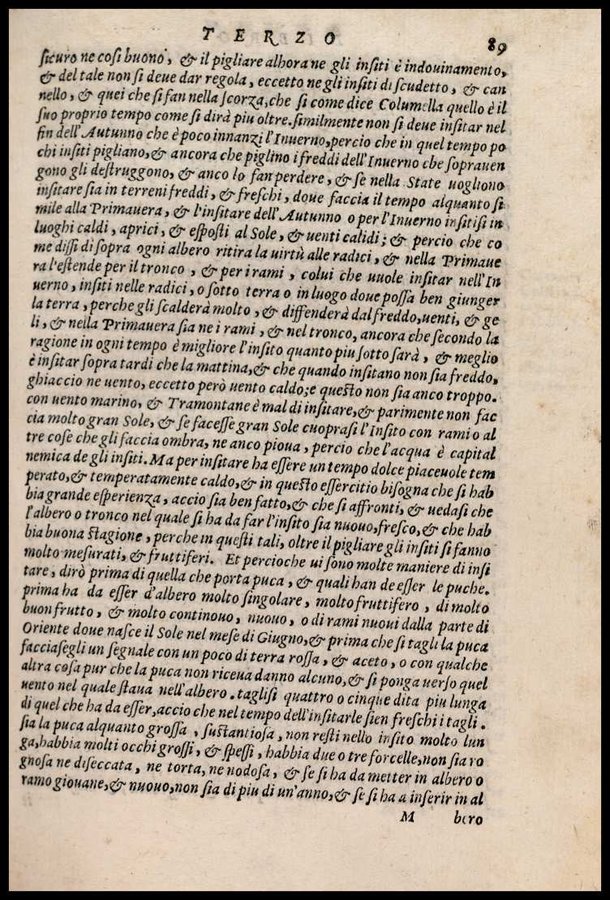 TERZO 89
sicuro ne cosi buono, & il pigliare alhora ne gli insiti è indouinamento,
& del tale non si deue dar regola, eccetto ne gli insiti di scudetto, & can
nello, & quei che si fan nella scorza, che si come dice Columella quello è il
suo proprio tempo come si dirà piu oltre. similmente non si deue insitar nel
fin dell'Autunno che è poco innanzi l'Inuerno, percio che in quel tempo po
chi insiti pigliano, & ancora che piglino i freddi dell'Inuerno che soprauen
gono gli destruggono, & anco lo fan perdere, & se nella State uogliono
insitare sia in terreni freddi, & freschi, doue faccia il tempo alquanto si
mile alla Primauera, & l'insitare dell'Autunno o per l'Inuerno insitisi in
luoghi caldi, aprici, & esposti al Sole, & uenti calidi; & percio che co
me dissi di sopra ogni albero ritira la uirtù alle radici, & nella Primaue
ra l'estende per il tronco, & per i rami, colui che uuole insitar nell'In
uerno, insiti nelle radici, o sotto terra o in luogo doue possa ben giunger
la terra, perche gli scalderà molto, & diffenderà dal freddo, uenti, & ge
li, & nella Primauera sia ne i rami, & nel tronco, ancora che secondo la
ragione in ogni tempo è migliore l'insito quanto piu sotto sarà, & meglio
è insitar sopra tardi che la mattina, & che quando insitano non sia freddo,
ghiaccio ne uento, eccetto però uento caldo; e questo non sia anco troppo.
con uento marino, & Tramontane è mal di insitare, & parimente non fac
cia molto gran Sole, & se facesse gran Sole cuoprasi l'Insito con rami o al
tre cose che gli faccia ombra, ne anco pioua, percio che l'acqua è capital
nemica de gli insiti. Ma per insitare ha essere un tempo dolce piaceuole tem
perato, & temperatamente caldo, & in questo essercitio bisogna che si hab
bia grande esperienza, accio sia ben fatto, & che si affronti, & uedasi che
l'albero o tronco nel quale si ha da far l'insito sia nuouo, fresco, & che hab
bia buona stagione, perche in questi tali, oltre il pigliare gli insiti si fanno
molto mesurati, & fruttiferi. Et percioche ui sono molte maniere di insi
tare, dirò prima di quella che porta puca, & quali han de esser le puche.
prima ha da esser d'albero molto singolare, molto fruttifero, di molto
buon frutto, & molto continouo, nuouo, o di rami nuoui dalla parte di
Oriente doue nasce il Sole nel mese di Giugno, & prima che si tagli la puca
facciasegli un segnale con un poco di terra rossa, & aceto, o con qualche
altra cosa pur che la puca non riceua danno alcuno, & si ponga uerso quel
uento nel quale staua nell'albero. taglisi quattro o cinque dita piu lunga
di quel che ha da esser, accio che nel tempo dell'insitarle sien freschi i tagli.
sia la puca alquanto grossa, sustantiosa, non resti nello insito molto lun
ga, habbia molti occhi grossi, & spessi, habbia due o tre forcelle, non sia ro
gnosa ne diseccata, ne torta, ne nodosa, & se si ha da metter in albero o
ramo giouane, & nuouo, non sia di piu di un'anno, & se si ha a inserir in al
M bero